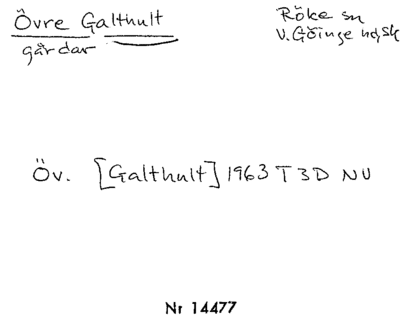 Övre Galthult
gårdar
Röke sn
V. Göinge hd, Sk
Öv. [Galthult] 1963 T 3D NV
Nr 14477